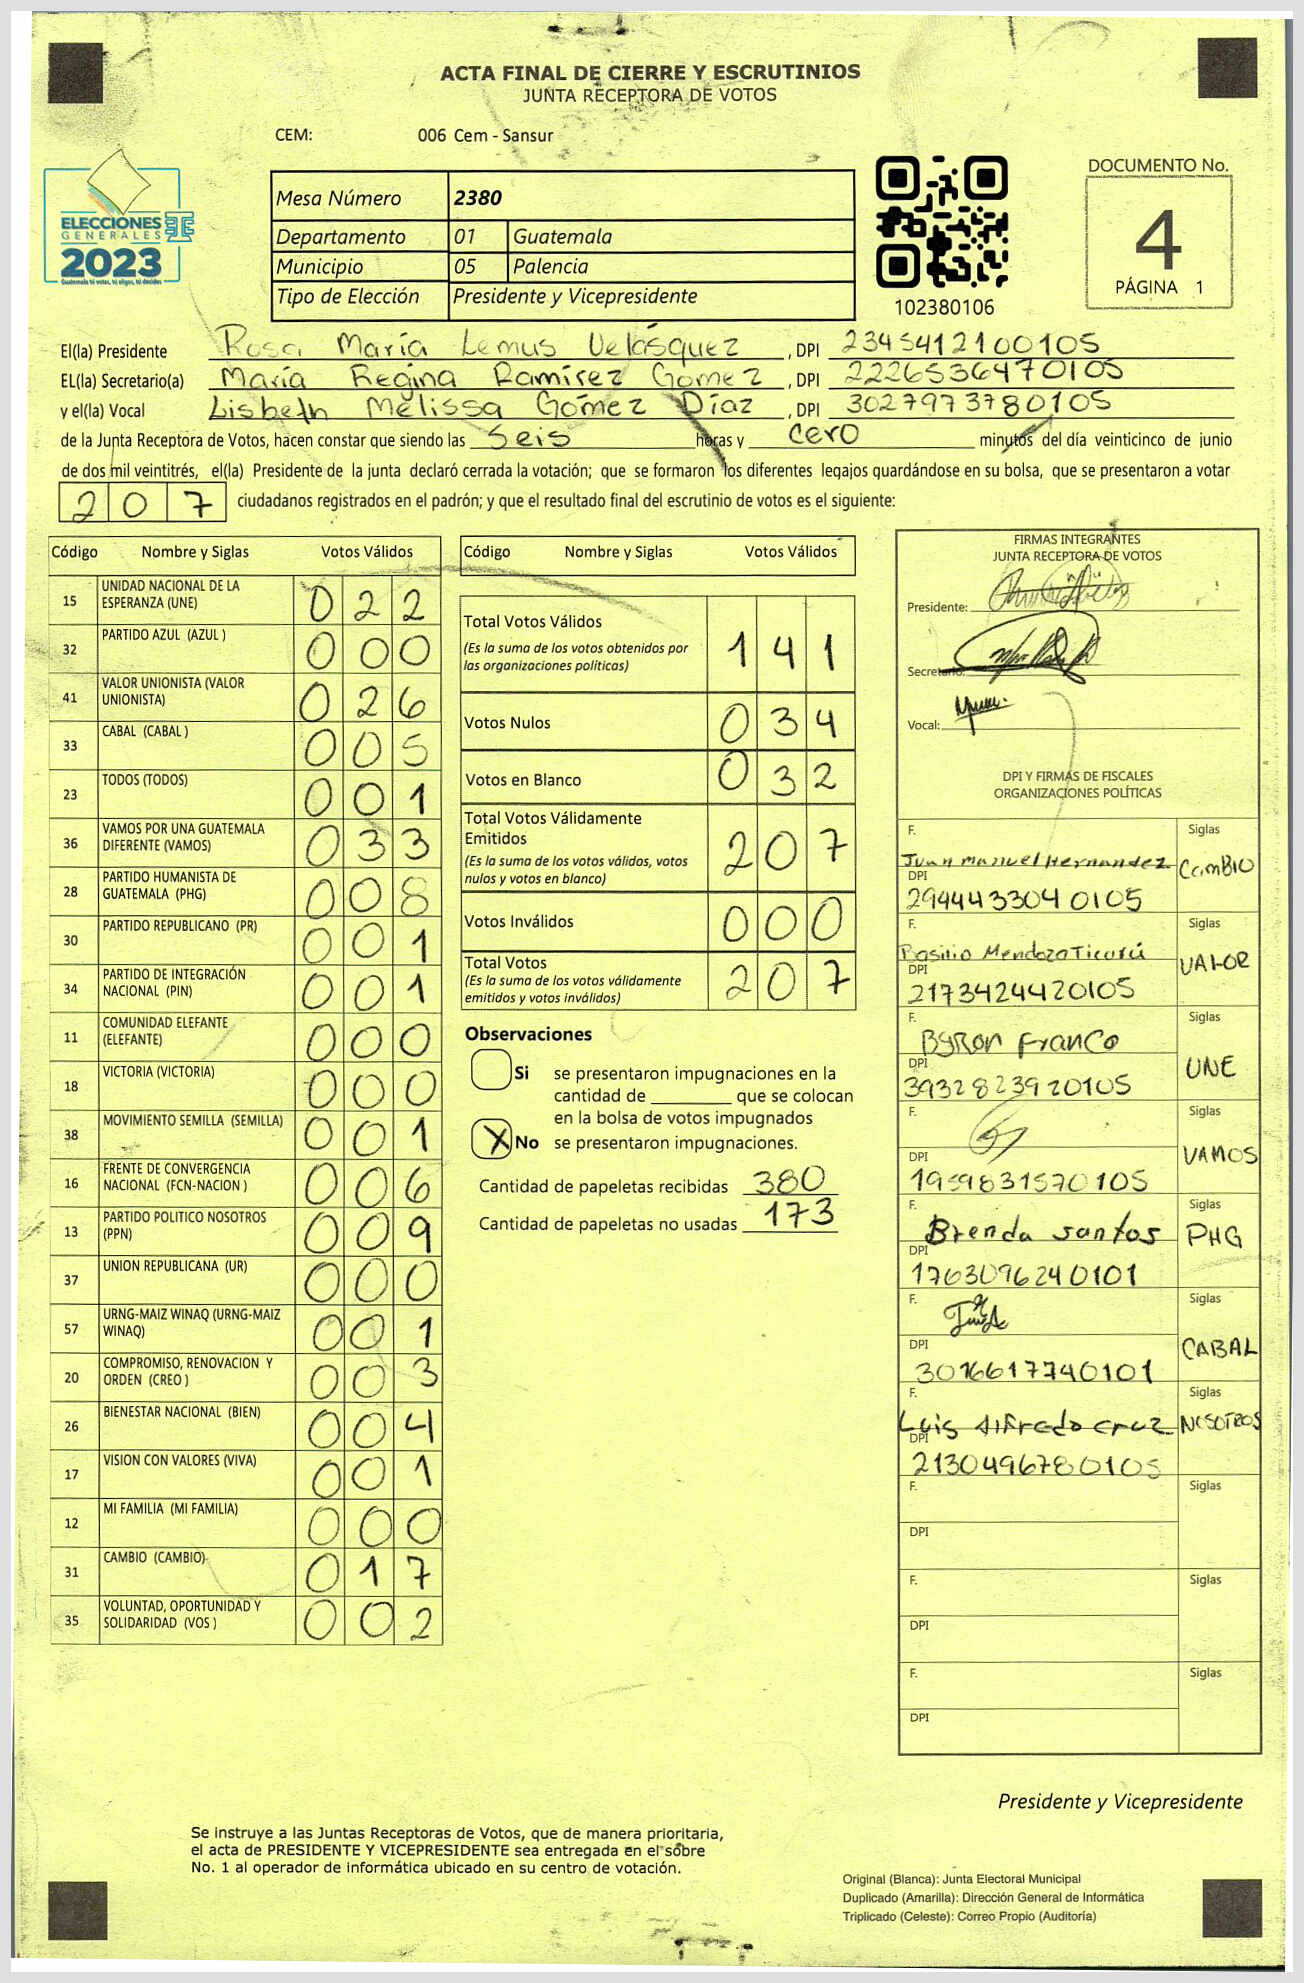 ACTA FINAL DE CIERRE Y ESCRUTINIOS
JUNTA RECEPTORA DE VOTOS
CEM: 006 Cem - Sansur
ELECCIONES
GENERALES
2023
Guatemala tú votas, tú eliges, tú decides
Mesa Número 2380
Departamento 01 Guatemala
Municipio 05 Palencia
Tipo de Elección Presidente y Vicepresidente
102380106
DOCUMENTO No.
4
PÁGINA 1
El(la) Presidente Rosa María Lemus Velásquez , DPI 2345412100105
EL(la) Secretario(a) María Regina Ramírez Gómez , DPI 2226536470105
y el(la) Vocal Lisbeth Melissa Gómez Díaz , DPI 3027973780105
de la Junta Receptora de Votos, hacen constar que siendo las Seis horas y cero minutos del día veinticinco de junio
de dos mil veintitrés, el(la) Presidente de la junta declaró cerrada la votación; que se formaron los diferentes legajos quardándose en su bolsa, que se presentaron a votar
207 ciudadanos registrados en el padrón; y que el resultado final del escrutinio de votos es el siguiente:
Código Nombre y Siglas Votos Válidos
15 UNIDAD NACIONAL DE LA ESPERANZA (UNE) 022
32 PARTIDO AZUL (AZUL ) 000
41 VALOR UNIONISTA (VALOR UNIONISTA) 026
33 CABAL (CABAL ) 005
23 TODOS (TODOS) 001
36 VAMOS POR UNA GUATEMALA DIFERENTE (VAMOS) 033
28 PARTIDO HUMANISTA DE GUATEMALA (PHG) 008
30 PARTIDO REPUBLICANO (PR) 001
34 PARTIDO DE INTEGRACIÓN NACIONAL (PIN) 001
11 COMUNIDAD ELEFANTE (ELEFANTE) 000
18 VICTORIA (VICTORIA) 000
38 MOVIMIENTO SEMILLA (SEMILLA) 001
16 FRENTE DE CONVERGENCIA NACIONAL (FCN-NACION ) 006
13 PARTIDO POLITICO NOSOTROS (PPN) 009
37 UNION REPUBLICANA (UR) 000
57 URNG-MAIZ WINAQ (URNG-MAIZ WINAQ) 001
20 COMPROMISO, RENOVACION Y ORDEN (CREO ) 003
26 BIENESTAR NACIONAL (BIEN) 004
17 VISION CON VALORES (VIVA) 001
12 MI FAMILIA (MI FAMILIA) 000
31 CAMBIO (CAMBIO) 017
35 VOLUNTAD, OPORTUNIDAD Y SOLIDARIDAD (VOS ) 002
Código Nombre y Siglas Votos Válidos
Total Votos Válidos 141
(Es la suma de los votos obtenidos por
las organizaciones políticas)
Votos Nulos 034
Votos en Blanco 032
Total Votos Válidamente
Emitidos 207
(Es la suma de los votos válidos, votos
nulos y votos en blanco)
Votos Inválidos 000
Total Votos 207
(Es la suma de los votos válidamente
emitidos y votos inválidos)
Observaciones
Si se presentaron impugnaciones en la
cantidad de ________ que se colocan
en la bolsa de votos impugnados
X No se presentaron impugnaciones.
Cantidad de papeletas recibidas 380
Cantidad de papeletas no usadas 173
FIRMAS INTEGRANTES
JUNTA RECEPTORA DE VOTOS
Presidente:
Secretario:
Vocal:
DPI Y FIRMAS DE FISCALES
ORGANIZACIONES POLÍTICAS
F. Juan Manuel Hernandez Siglas CAMBIO
DPI 2944433040105
F. Basilio Mendoza Ticurú Siglas VALOR
DPI 2173424420105
F. Byron Franco Siglas UNE
DPI 3932823920105
F. Siglas VAMOS
DPI 1959831570105
F. Brenda santos Siglas PHG
DPI 1763096240101
F. Siglas CABAL
DPI 3016617740101
F. Luis Alfredo cruz Siglas NOSOTROS
DPI 2130496780105
F. Siglas
DPI
F. Siglas
DPI
F. Siglas
DPI
Presidente y Vicepresidente
Se instruye a las Juntas Receptoras de Votos, que de manera prioritaria,
el acta de PRESIDENTE Y VICEPRESIDENTE sea entregada en el sobre
No. 1 al operador de informática ubicado en su centro de votación.
Original (Blanca): Junta Electoral Municipal
Duplicado (Amarilla): Dirección General de Informática
Triplicado (Celeste): Correo Propio (Auditoría)